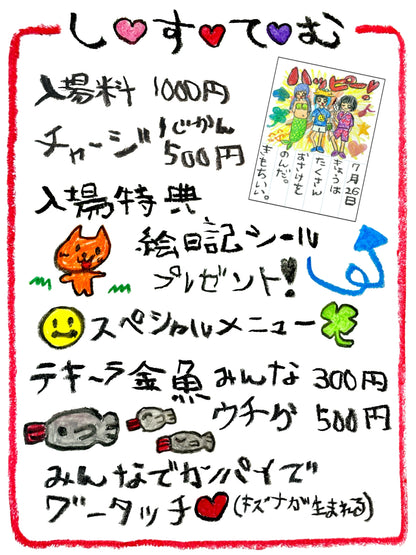 し♥す♥て♥む
入場料 1000円
チャージ 1じかん 500円
入場特典
絵日記シール
プレゼント!
スペシャルメニュー
テキーラ金魚 みんな 300円
ウチガ 500円
みんなでカンパイで
グータッチ♥(キズナが生まれる)
ハッピー♪
7月26日
きょうは
たくさん
おさけを
のんだ。
きもちいい。